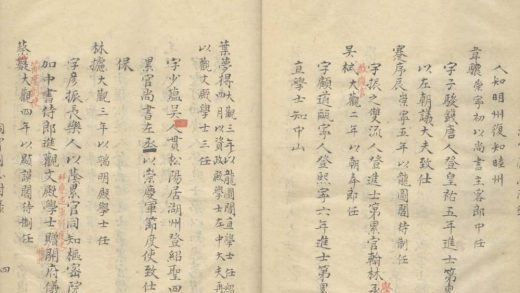 人知明州復知睦州
韋驤崇寧初以尚書主客郎中任
字子駿錢唐人登皇祐五年進士第
以左朝議大夫致任
蹇序辰崇寧五年以龍圖閣待制任
字振之雙流人登進士第累官翰林
吳栻大觀二年以朝奉郎任
字顧道甌寧人登熙寧六年進士第累
直學士知中山
葉夢得大觀三年以龍圖閣直學士任紹
四月以資政殿學士左中大夫再
以觀文殿學士三任
字少蘊吳人貫松陽居湖州登紹聖四
累官尚書左丞以崇慶軍節度使致仕
保
林攄大觀三年以端明殿學士任
字彥振長樂人以蔭累官同知樞密院
如中書侍郎進觀文殿學士贈開府儀
大觀四年以顯謨閣待制任
四